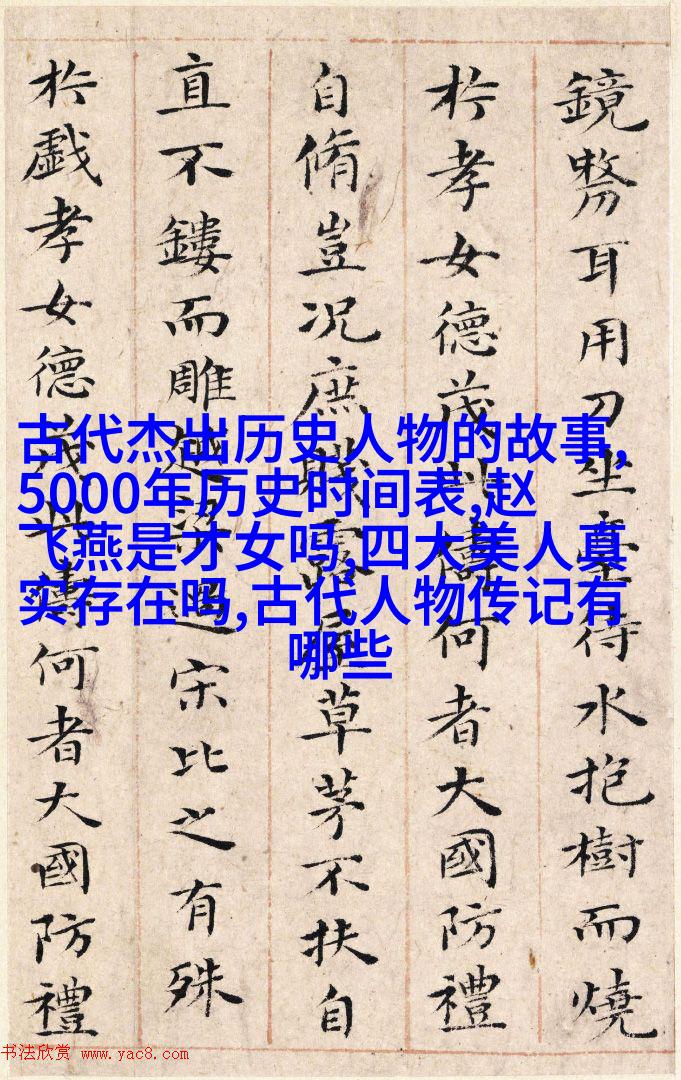 鏡剺耳用刀坐臺待水抱樹而燒
於孝女德茂此儔何者大國防禮
自脩豈況庶賤露屋草茅不扶自
直不鏤而雕越梁過宋比之有殊
於戲孝女德茂此儔何者大國防禮
古代杰出历史人物的故事,
5000年历史时间表,赵
飞燕是才女吗,四大美人真
实存在吗,古代人物传记有
哪些
书法欣赏 www.yac8.com